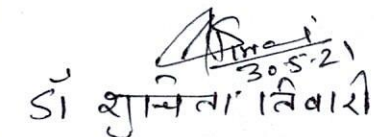 30.5.21
डॉ शुचिता तिवारी